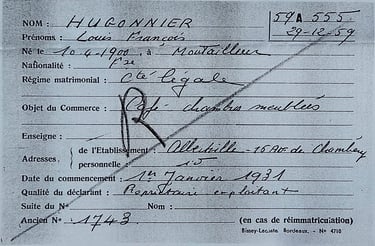 NOM : HUGONNIER
59 A 555
Prénoms : Louis François
29-12-59
Né le 10-4-1900 à Montailleur
Nationalité : Fse
Régime matrimonial : Cté légale
Objet du Commerce : Café chambres meublées
R
Enseigne :
Adresses : de l'Etablissement : Albertville - 15 Rue de Chambéry
personnelle : id
Date du commencement : 1er Janvier 1931
Qualité du déclarant : Propriétaire exploitant
Suite du No Nom :
Ancien No : 1743 (en cas de réimmatriculation)
Bordeaux. - No 4710